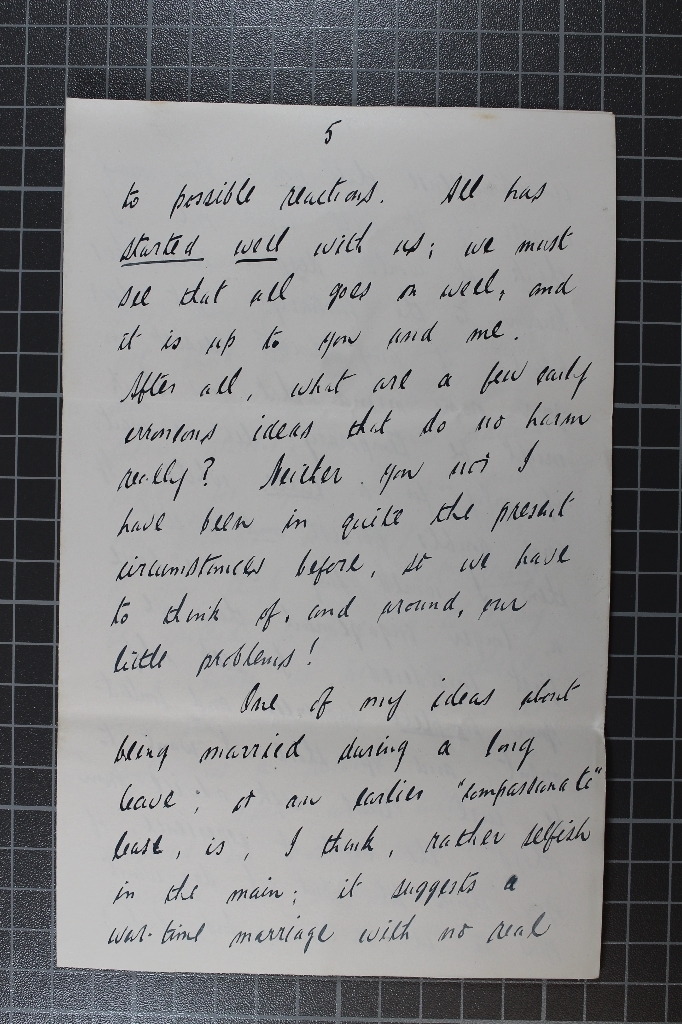 5
to possible reactions. All has
started well with us; we must
see that all goes on well, and
it is up to you and me.
After all, what are a few early
erroneous ideas that do no harm
really? Neither you nor I
have been in quite the present
circumstances before, so we have
to think of, and around, our
little problems!
One of my ideas about
being married during a long
leave; or an earlier "compassionate"
leave, is, I think, rather selfish
in the main; it suggests a
war-time marriage with no real